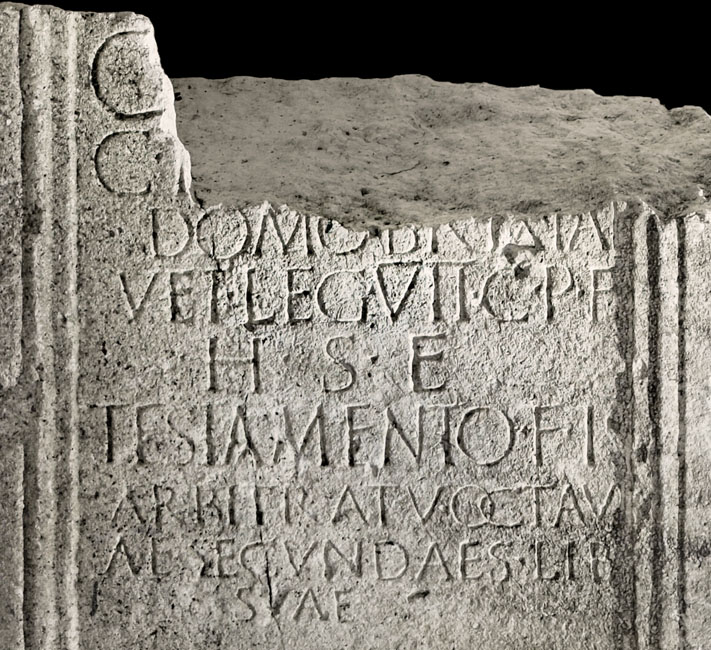 C
C
DOMO
VET·LEG·VII·C·P·F
H · S · E
TESTAMENTO·F·I
ARBITRATV OCTAV
AE SECVNDAES·LIB
SVAE